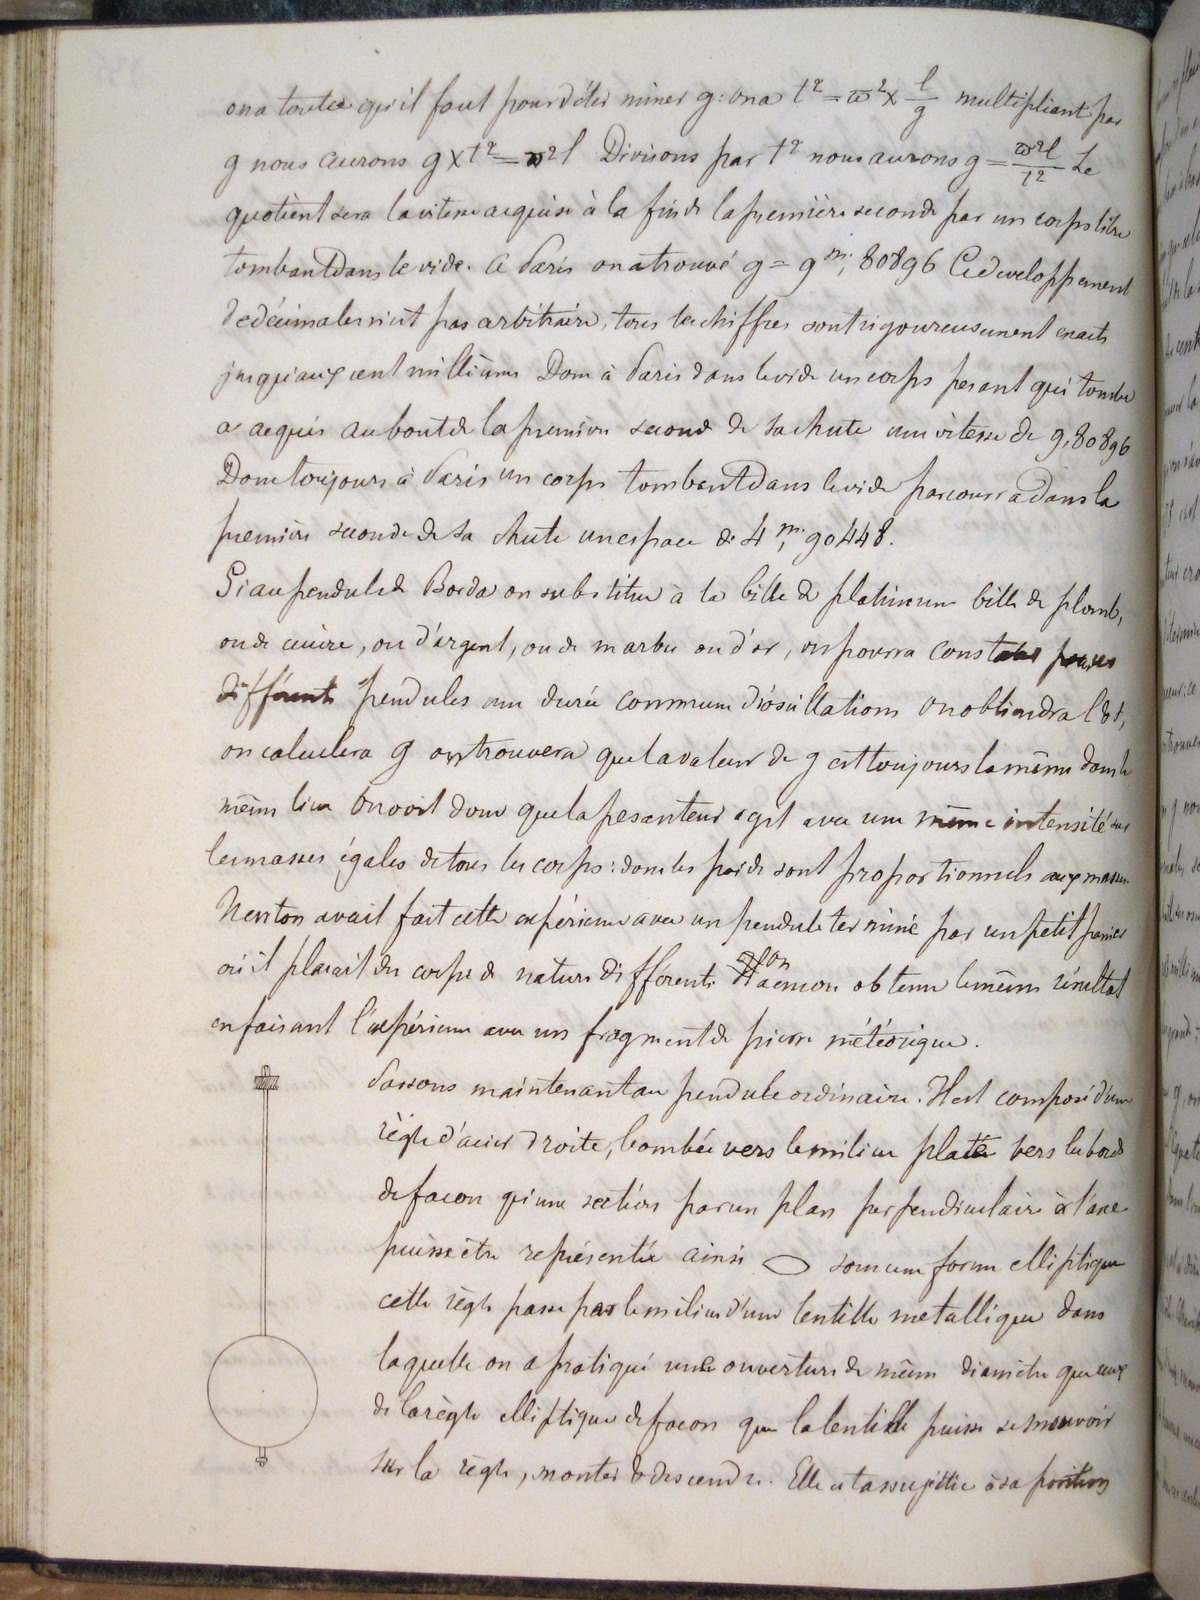 on a toute qu'il faut pour déterminer g: on a t² = ϖ² × l/g multipliant par
g nous aurons g × t² = ϖ² l Divisons par t² nous aurons g = ϖ²l/t² Le
quotient sera la vitesse acquise à la fin de la première seconde par un corps libre
tombant dans le vide. A Paris on a trouvé g = 9m, 80896 Ce developpement
de décimales n'est pas arbitraire, tous les chiffres sont rigoureusement exacts
jusqu'aux cent millièmes Donc à Paris dans le vide un corps pesant qui tombe
a acquis au bout de la première seconde de sa chute une vitesse de 9,80896
Donc toujours à Paris un corps tombant dans le vide parcourra dans la
première seconde de sa chute un espace de 4m, 90448.
Si au pendule de Borda on substitue à la bille de platine une bille de plomb,
ou de cuivre, ou d'argent, ou de marbre ou d'or, on pourra constater pour ces
différents pendules une durée commune d'oscillations On obtiendra l & t,
on calculera g on trouvera que la valeur de g est toujours la même dans le
même lieu On voit donc que la pesanteur agit avec une même intensité sur
les masses égales de tous les corps: donc les poids sont proportionnels aux masses
Newton avait fait cette expérience avec un pendule terminé par un petit panier
où il plaçait des corps de nature différente On a encore obtenu le même résultat
en faisant l'expérience avec un fragment de pierre météorique.
Passons maintenant au pendule ordinaire. Il est composé d'une
règle d'acier droite, bombée vers le milieu plate vers les bords
de façon qu'une section par un plan perpendiculaire à l'axe
puisse être représentée ainsi sous une forme elliptique
cette règle passe par le milieu d'une lentille metallique dans
laquelle on a pratiqué une ouverture de même diamètre que ceux
de la règle elliptique de façon que la lentille puisse se mouvoir
sur la règle, monter & descendre. Elle est assujettie à sa position